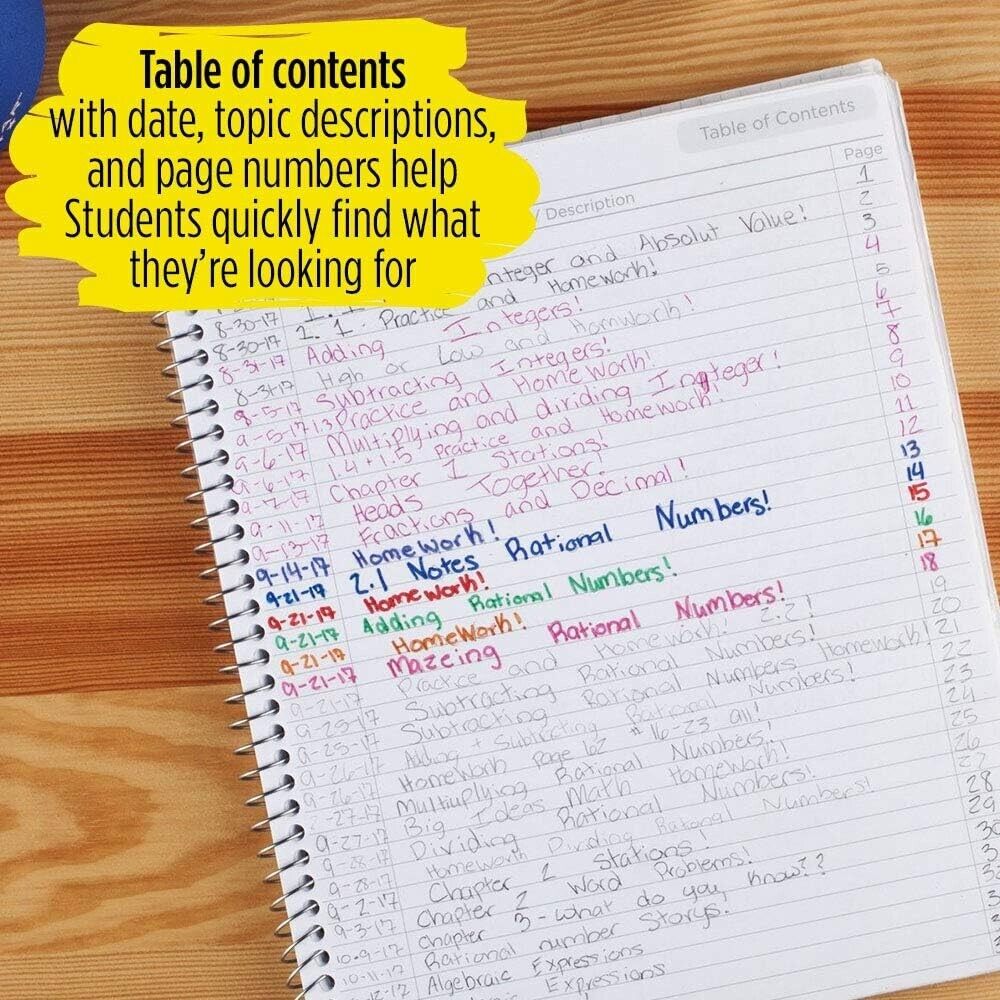 Table of contents
with date, topic descriptions,
and page numbers help
Students quickly find what
they're looking for
Table of Contents
/ Description Page
1
2
nteger and Absolut Value! 3
8-30-17 1. 1 Practice and Homework! 4
8-30-17 2. 1.
8-31-17 Adding Integers! 5
8-31-17 High or Low and Homworh! 6
9-5-17 Subtracting Integers! 7
9-5-17 1.3 Practice and Homework! 8
9-6-17 Multiplying and dividing Integer! 9
9-6-17 1.4 + 1.5 Practice and Homework! 10
9-7-17 Chapter 1 Stations! 11
9-11-17 Heads Together! 12
9-13-17 Fractions and Decimal!
9-14-17 Homework! 13
9-21-17 2.1 Notes Rational Numbers! 14
9-21-17 Homework! 15
9-21-17 Adding Rational Numbers! 16
9-21-17 HomeWork! 17
9-21-17 Mazeing Rational Numbers! 18
9-21-17 Practice and Homework! 2.2! 19
9-25-17 Subtracting Rational Numbers! 20
9-25-17 Subtracting Rational Numbers Homework! 21
9-26-17 Adding + Subtracting Rational Numbers! 22
9-26-17 Homework Page 62 # 16-23 all! 23
-27-17 Multiuplying Rational Numbers! 24
9-27-17 Big Ideas Math Homework! 25
9-28-17 Dividing Rational Numbers! 26
9-28-17 Homework Dividing Rational Numbers! 27
9-2-17 Chapter 2 Stations! 28
9-3-17 Chapter 2 Word Problems! 29
10-9-17 Chapter 3 - what do you know??
10-11-17 Rational number Storys!
-12-17 Algebraic Expressions
Expressions